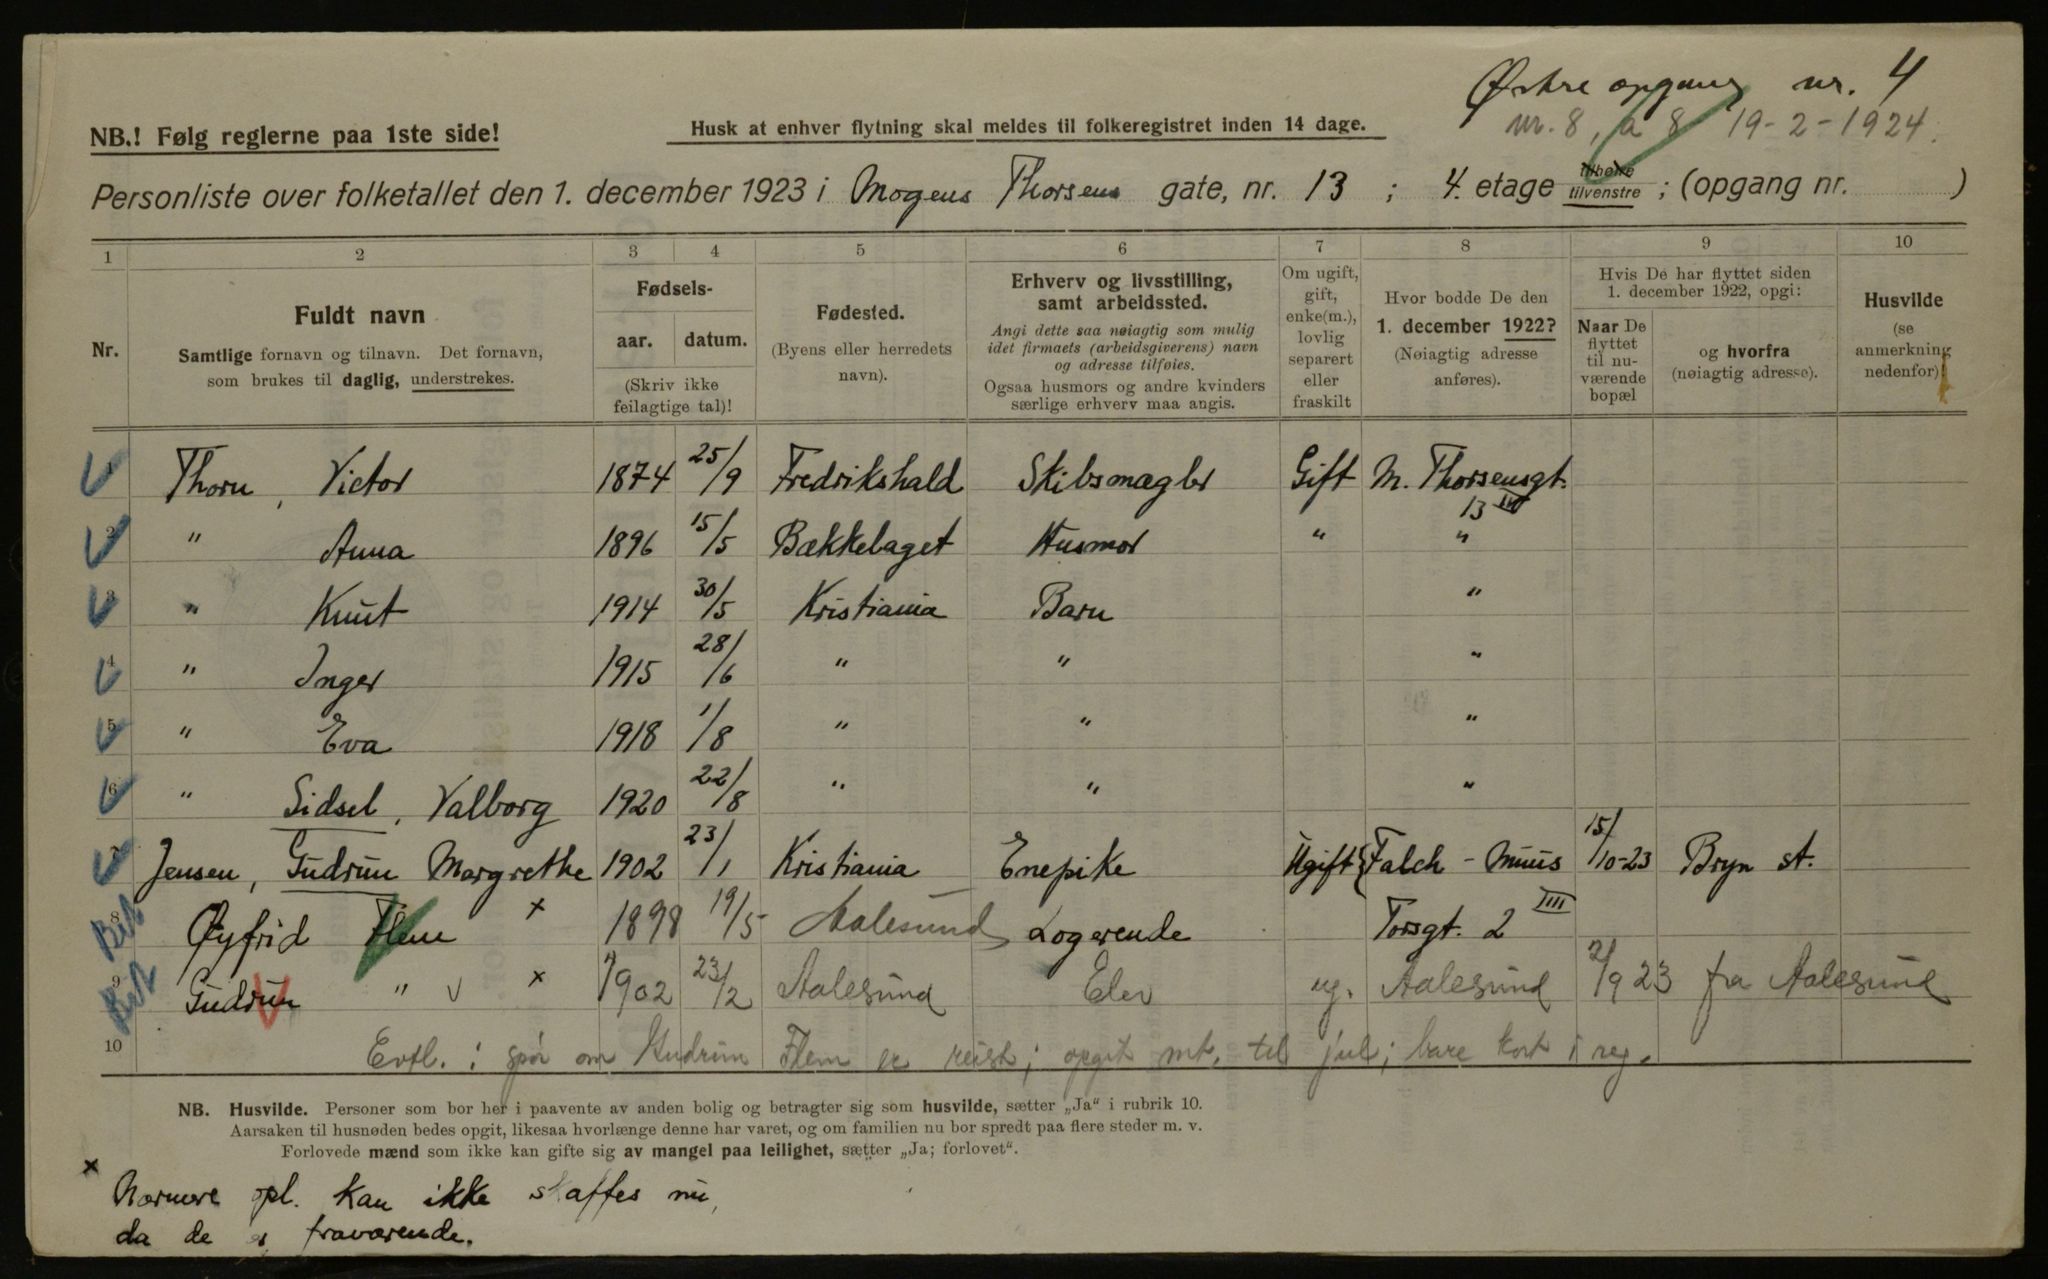 Østre opgang nr. 4
nr. 8, a 8 19-2-1924.
NB.! Følg reglerne paa 1ste side!
Husk at enhver flytning skal meldes til folkeregistret inden 14 dage.
Personliste over folketallet den 1. december 1923 i Mogens Thorsens gate, nr. 13 ; 4. etage tilhøire/tilvenstre ; (opgang nr. )
1 2 3 4 5 6 7 8 9 10
Nr.
Fuldt navn
Samtlige fornavn og tilnavn. Det fornavn,
som brukes til daglig, understrekes.
Fødsels-
aar. datum.
(Skriv ikke
feilagtige tal)!
Fødested.
(Byens eller herredets
navn).
Erhverv og livsstilling,
samt arbeidssted.
Angi dette saa nøiagtig som mulig
idet firmaets (arbeidsgiverens) navn
og adresse tilføies.
Ogsaa husmors og andre kvinders
særlige erhverv maa angis.
Om ugift,
gift,
enke(m.),
lovlig
separert
eller
fraskilt
Hvor bodde De den
1. december 1922?
(Nøiagtig adresse
anføres).
Hvis De har flyttet siden
1. december 1922, opgi:
Naar De
flyttet
til nu-
værende
bopæl
og hvorfra
(nøiagtig adresse).
Husvilde
(se
anmerkning
nedenfor)!
1 Thorn, Victor 1874 25/9 Fredrikshald Skibsmægler Gift M. Thorsensgt.
13 III
2 " Anna 1896 15/5 Bækkelaget Husmor " "
3 " Knut 1914 30/5 Kristiania Barn "
4 " Inger 1915 28/6 " " "
5 " Eva 1918 1/8 " " "
6 " Sidsel, Valborg 1920 22/8 " " "
7 Jensen, Gudrun Margrethe 1902 23/1 Kristiania Enepike Ugift { Falch - Muus 15/10-23 Bryn st.
8 Øyfrid Flem x 1898 19/5 Aalesund Logerende Torsgt. 2 IIII
9 Gudrun " v x 1902 23/2 Aalesund Elev ug. Aalesund 2/9 23 fra Aalesund
10 Evtl. : spør om Gudrun Flem er reist; opgit mt. til jul; bare kort i reg.
NB. Husvilde. Personer som bor her i paavente av anden bolig og betragter sig som husvilde, sætter „Ja" i rubrik 10.
Aarsaken til husnøden bedes opgit, likesaa hvorlænge denne har varet, og om familien nu bor spredt paa flere steder m. v.
Forlovede mænd som ikke kan gifte sig av mangel paa leilighet, sætter „Ja; forlovet".
x Nærmere opl. kan ikke skaffes nu,
da de er fraværende.